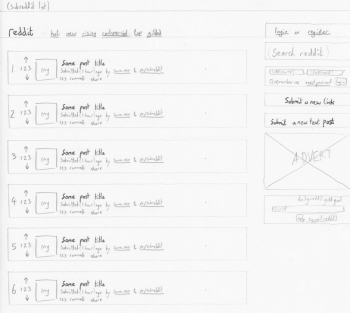 (Subreddit list)
reddit hot new rising controversial top gilded
1 123 img Some post title
Submitted 1 hour ago by username to /r/subreddit
123 comments share
2 123 img Some post title
Submitted 1 hour ago by username to /r/subreddit
123 comments share
3 123 img Some post title
Submitted 1 hour ago by username to /r/subreddit
123 comments share
4 123 img Some post title
Submitted 1 hour ago by username to /r/subreddit
123 comments share
5 123 img Some post title
Submitted 1 hour ago by username to /r/subreddit
123 comments share
6 123 img Some post title
Submitted 1 hour ago by username to /r/subreddit
123 comments share
login or register
(Search reddit)
remember me reset password login
Submit a new link
Submit a new text post
ADVERT
daily reddit gold goal